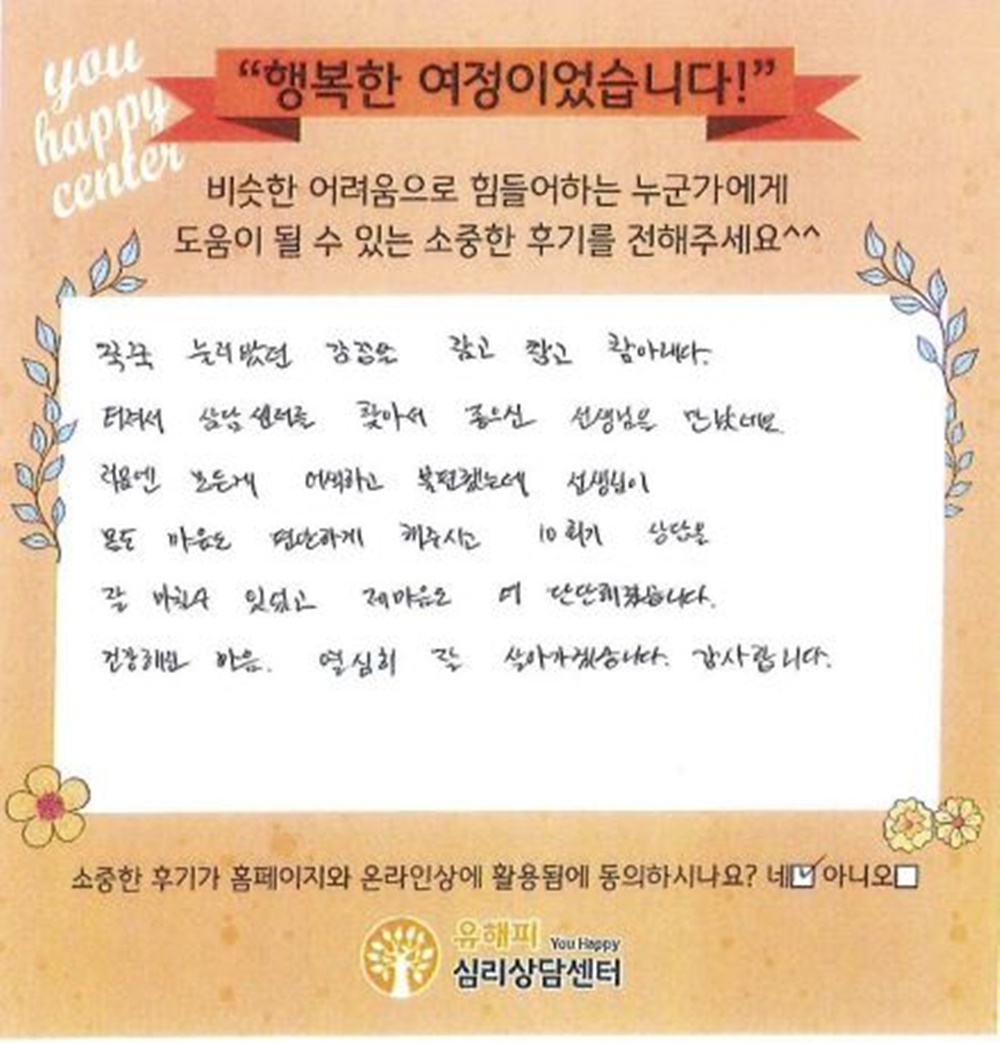 you
happy
center
“행복한 여정이었습니다!”
비슷한 어려움으로 힘들어하는 누군가에게
도움이 될 수 있는 소중한 후기를 전해주세요^^
꾹꾹 눌러왔던 감정을 참고 참고 참아내다.
터져서 상담센터를 찾아서 좋으신 선생님을 만났네요.
처음엔 모든게 어색하고 불편했는데 선생님이
몸도 마음도 편안하게 해주시고 10회기 상담을
잘 마칠수 있었고 제마음도 더 단단해졌습니다.
건강해진 마음. 열심히 잘 살아가겠습니다. 감사합니다.
소중한 후기가 홈페이지와 온라인상에 활용됨에 동의하시나요? 네 아니오
유해피 You Happy
심리상담센터